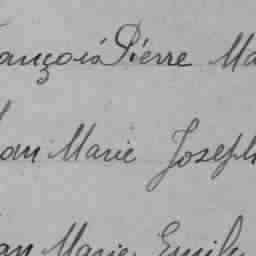 ançois Pierre Ma
ean Marie Joseph
an Marie Emile